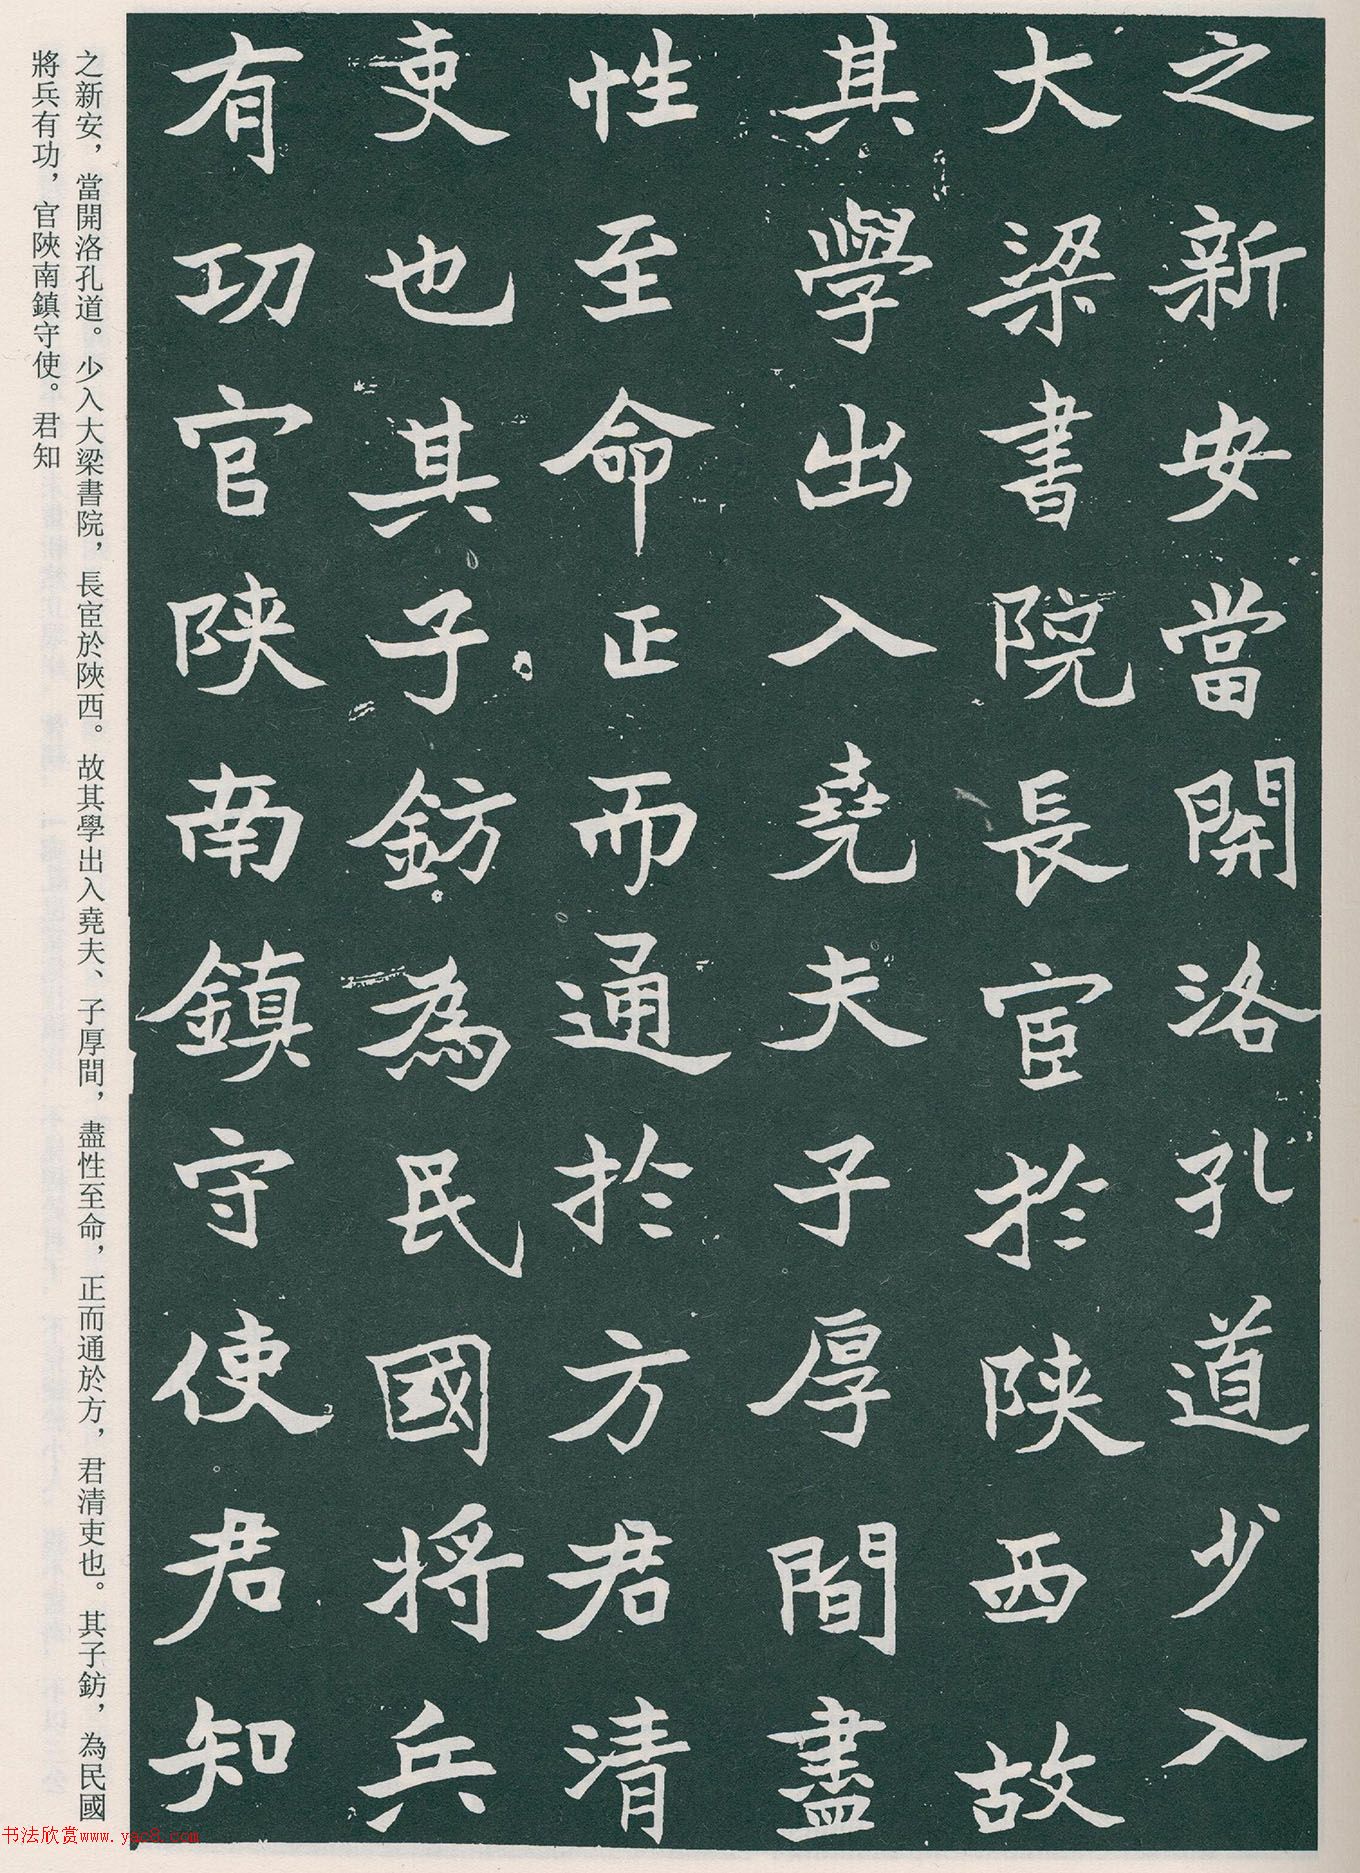 之新安當開洛孔道少入
大梁書院長宦於陝西故
其學出入堯夫子厚間盡
性至命正而通於方君清
吏也其子鈁為民國將兵
有功官陝南鎮守使君知
之新安，當開洛孔道。少入大梁書院，長宦於陝西。故其學出入堯夫、子厚間，盡性至命，正而通於方，君清吏也。其子鈁，為民國
將兵有功，官陝南鎮守使。君知
书法欣赏www.yac8.com